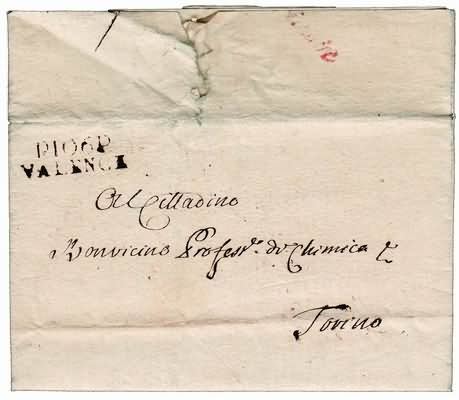 P106P
VALENCE
Al Cittadino
Bonvicino Profess.r di Chimica &
Torino